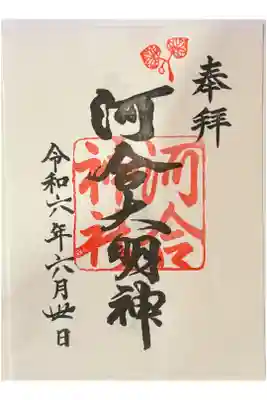 奉拝
河合大明神
河合
神社
令和六年六月卅日